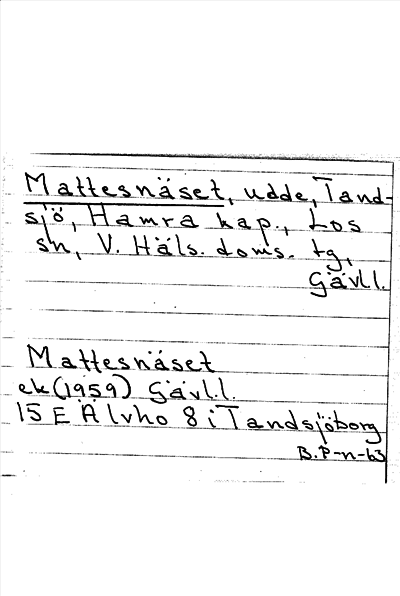 Mattesnäset, udde, Tand-
sjö, Hamra kap., Los
sn, V. Häls. doms. tg,
Gävl l.
Mattesnäset
ek (1959) Gävl. l.
15 E Älvho 8 i Tandsjöborg
B. P-n-63